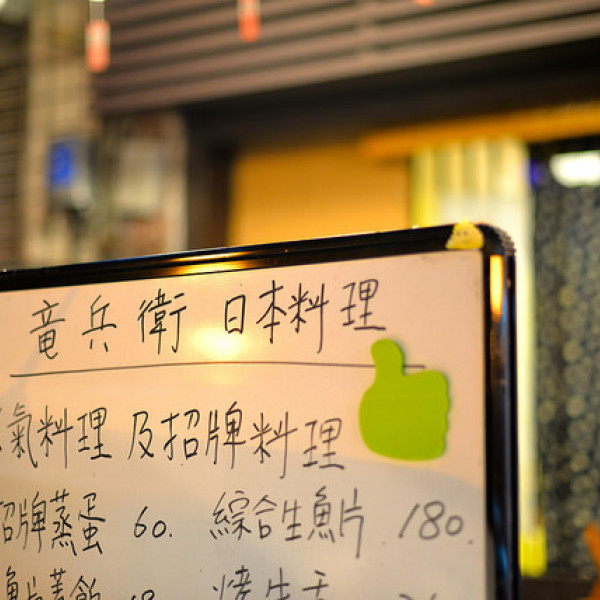 竜兵衛 日本料理
氣料理及招牌料理
招牌蒸蛋 60. 綜合生魚片 180.